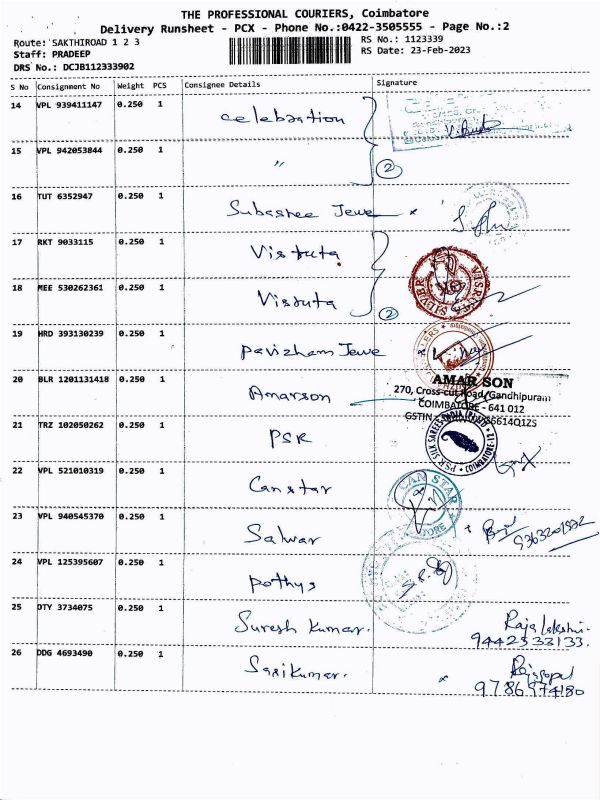 THE PROFESSIONAL COURIERS, Coimbatore
Delivery Runsheet - PCX - Phone No.:0422-3505555 - Page No.:2
Route: SAKTHIROAD 1 2 3
RS No.: 1123339
Staff: PRADEEP
RS Date: 23-Feb-2023
DRS No.: DCJB112333902
S No Consignment No Weight PCS Consignee Details Signature
14 VPL 939411147 0.250 1 celebration
15 VPL 942053844 0.250 1 〃 2
16 TUT 6352947 0.250 1 Subashree Jewe
17 RKT 9033115 0.250 1 Vistuta
18 MEE 530262361 0.250 1 Vistuta 2
19 HRD 393130239 0.250 1 Pavizham Jewe
20 BLR 1201131418 0.250 1 Amarson
AMAR SON
270, Cross-cut Road, Gandhipuram
COIMBATORE - 641 012
GSTIN
21 TRZ 102050262 0.250 1 PSR
PSR SILK SAREES INDIA
22 VPL 521010319 0.250 1 Canstar
CAN STAR
23 VPL 940545370 0.250 1 Salwar
24 VPL 125395607 0.250 1 Pothys
25 DTY 3734075 0.250 1 Suresh Kumar.
Rajalakshmi
9442533133.
26 DDG 4693490 0.250 1 Sasikumar.
Rajagopal
9786974180